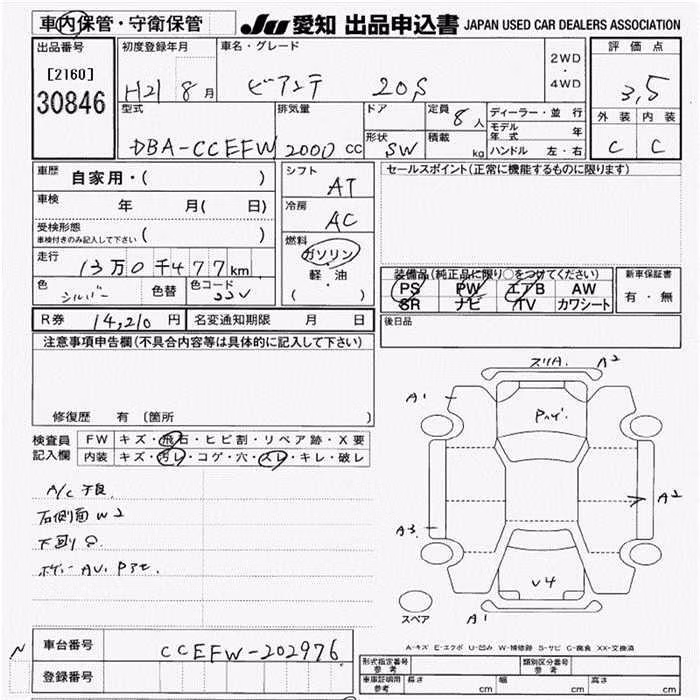 車内保管・守衛保管
JU 愛知 出品申込書 JAPAN USED CAR DEALERS ASSOCIATION
出品番号 初度登録年月 車名・グレード 2WD ・ 4WD 評価点
[2160] 30846
H21 8月 ビアンテ 20S
3,5
型式 排気量 ドア 定員 8人 ディーラー・並行
DBA-CCEFW 2000CC
形状 SW 積載 kg
モデル年式 年
ハンドル 左・右
外装 内装
C C
車歴 自家用・( )
シフト AT
セールスポイント(正常に機能するものに限ります)
車検 年 月( 日)
冷房 AC
受検形態 ( )
車検付きのみ記入して下さい
燃料 ガソリン・軽・油 ( )
走行 13万0千477km
色 シルバー 色替 色コード
装備品(純正品に限り○をつけてください)
PS PW エアB AW
SR ナビ TV カワシート
新車保証書
有・無
R券 14,210円 名変通知期限 月 日
後日品
注意事項申告欄(不具合内容等は具体的に記入して下さい)
修復歴 有 〔箇所
検査員記入欄
FW キズ・飛石・ヒビ割・リペア跡・X要
内装 キズ・汚レ・コゲ・穴・スレ・キレ・破レ
A/C 不良
右側面 W2
下回り
スリA. A2
A1
A2
A3
V4
A1
スペア
A-キズ E-エクボ U-凹み W-補修跡 S-サビ C-腐食 XX-交換済
N
車台番号 CCEFW-202976
登録番号
形式指定番号 参考 類別区分番号 参考
車庫証明用 参考 長さ cm 幅 cm 高さ cm